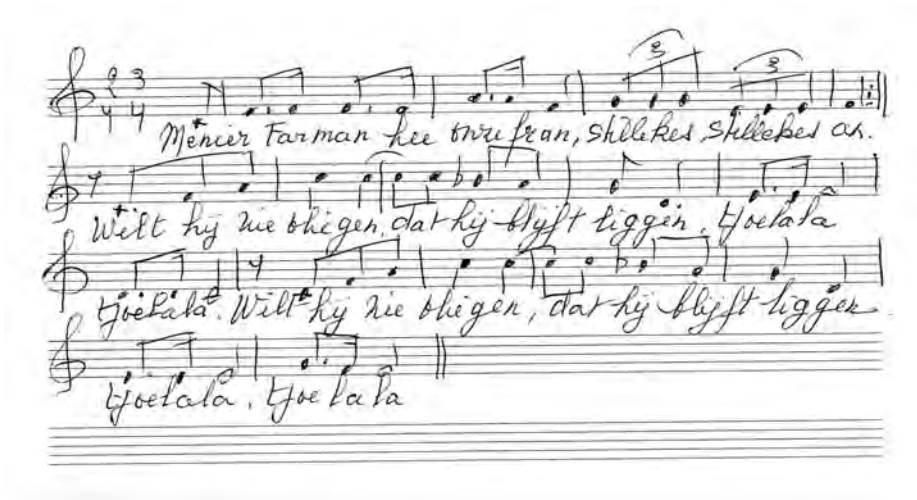 3 3
2 3
4 4
Menier Farman hee stillekes, stillekes an.
Wilt hij nie vliegen, dat hij blijft liggen, tjoelala
tjoelala. Wilt hij nie vliegen, dat hij blijft liggen
tjoelala, tjoelala